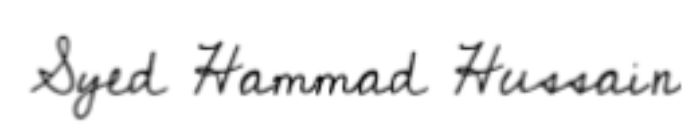 Syed Hammad Hussain